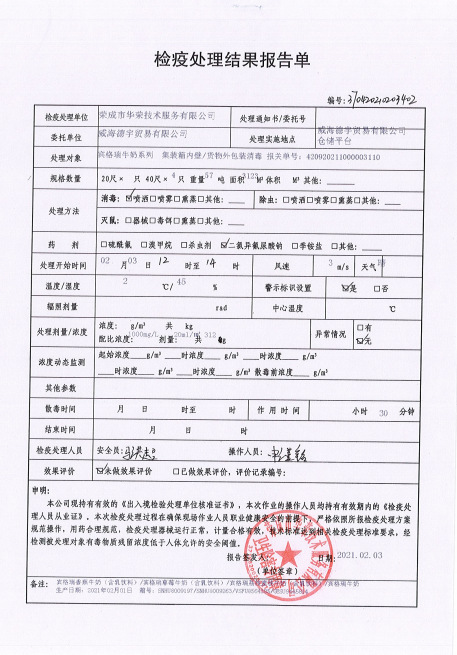 检疫处理结果报告单
编号: 370420210203402
检疫处理单位 荣成市华荣技术服务有限公司 处理通知书/委托号
委托单位 威海德宇贸易有限公司 处理实施地点 威海德宇贸易有限公司仓储平台
处理对象 宾格瑞牛奶系列 集装箱内壁/货物外包装消毒 报关单号: 420920211000003110
规格数量 20尺× 只 40尺× 4 只 重量 57 吨 面积 3123 M² 体积 M³ 其他:
处理方法 消毒: ☑喷洒□喷雾□熏蒸□其他:____ 除虫: □喷洒□喷雾□熏蒸□其他:____
灭鼠: □器械□毒饵□熏蒸□其他:____
药 剂 □硫酰氟 □溴甲烷 □杀虫剂 ☑二氯异氰尿酸钠 □季铵盐 □其他:____
处理开始时间 02 月 03 日 12 时至 14 时 风速 3 m/s 天气
温度/湿度 2 ℃/ 45 % 警示标识设置 ☑是 □否
辐照剂量 rad 中心温度 ℃
处理剂量/浓度 浓度: g/m³ 共 kg 异常情况 □有
1000mg/L 20ml/m² 312
配比浓度: 剂量: 共 kg ☑无
浓度动态监测 起始浓度____g/m³ ____时浓度____g/m³ ____时浓度____g/m³
____时浓度____g/m³ ____时浓度____g/m³ 散毒前浓度____g/m³
其他参数
散毒时间 月 日 时至 时 作用时间 小时 30 分钟
结束时间 月 日 时
检疫处理人员 安全员: 操作人员:
效果评价 ☑未做效果评价 □已做效果评价, 评价记录编号:
申明:
本公司现持有有效的《出入境检验处理单位核准证书》, 本次作业的操作人员均持有有效期内的《检疫处
理人员从业证》, 本次检疫处理过程在确保现场作业人员职业健康安全的前提下, 严格依照所报检疫处理方案
规范操作, 用药合理规范, 检疫处理器械运行正常, 计量合格有效, 技术标准达到相关检疫处理标准要求, 经
检测被处理对象有毒物质残留浓度低于人体允许的安全阈值。
报告签发人: 日期: 2021.02.03
(单位签章)
备注: 宾格瑞香蕉牛奶(含乳饮料)/宾格瑞草莓牛奶(含乳饮料)/宾格瑞
生产日期: 2021年02月01日 箱号: